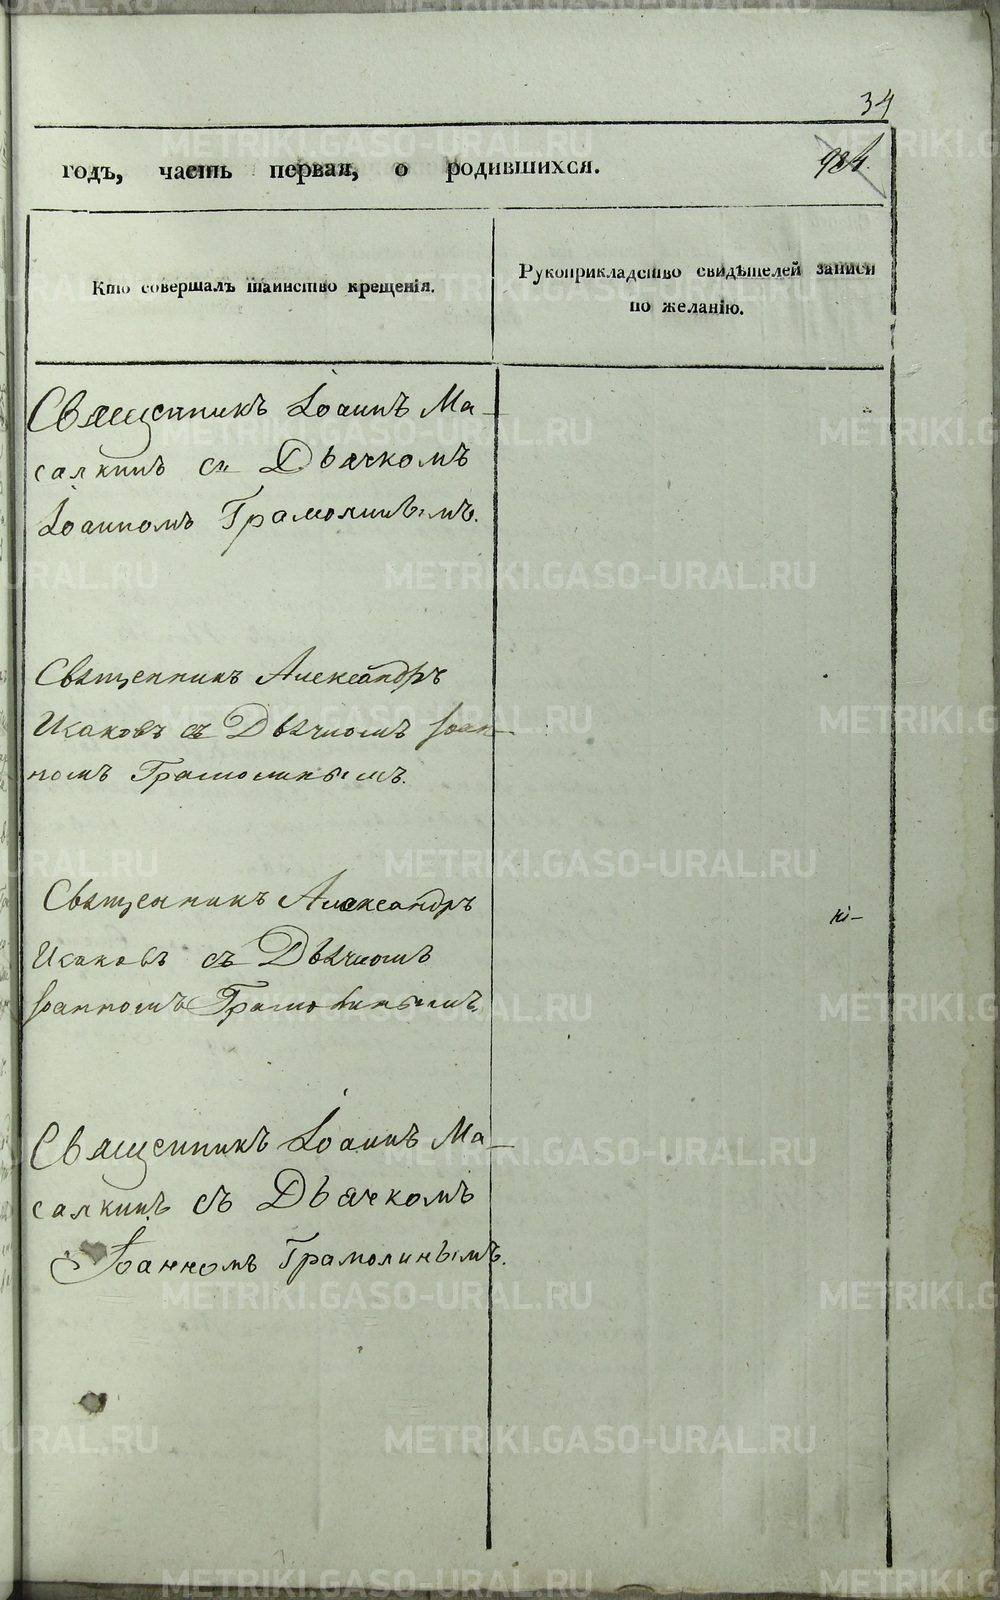 34
годъ, часть первая, о родившихся.
984.
Кто совершалъ таинство крещенія.
Рукоприкладство свидѣтелей записи
по желанію.
Священникъ Іоаннъ Ма-
салкинъ съ Дьячкомъ
Іоанномъ Грамолинымъ.
Священникъ Александръ
Исаковъ съ Дьячкомъ Іоан-
номъ Грамолинымъ.
Священникъ Александръ
Исаковъ съ Дьячкомъ
Іоанномъ Грамолинымъ.
Священникъ Іоаннъ Ма-
салкинъ съ Дьячкомъ
Іоанномъ Грамолинымъ.
METRIKI.GASO-URAL.RU